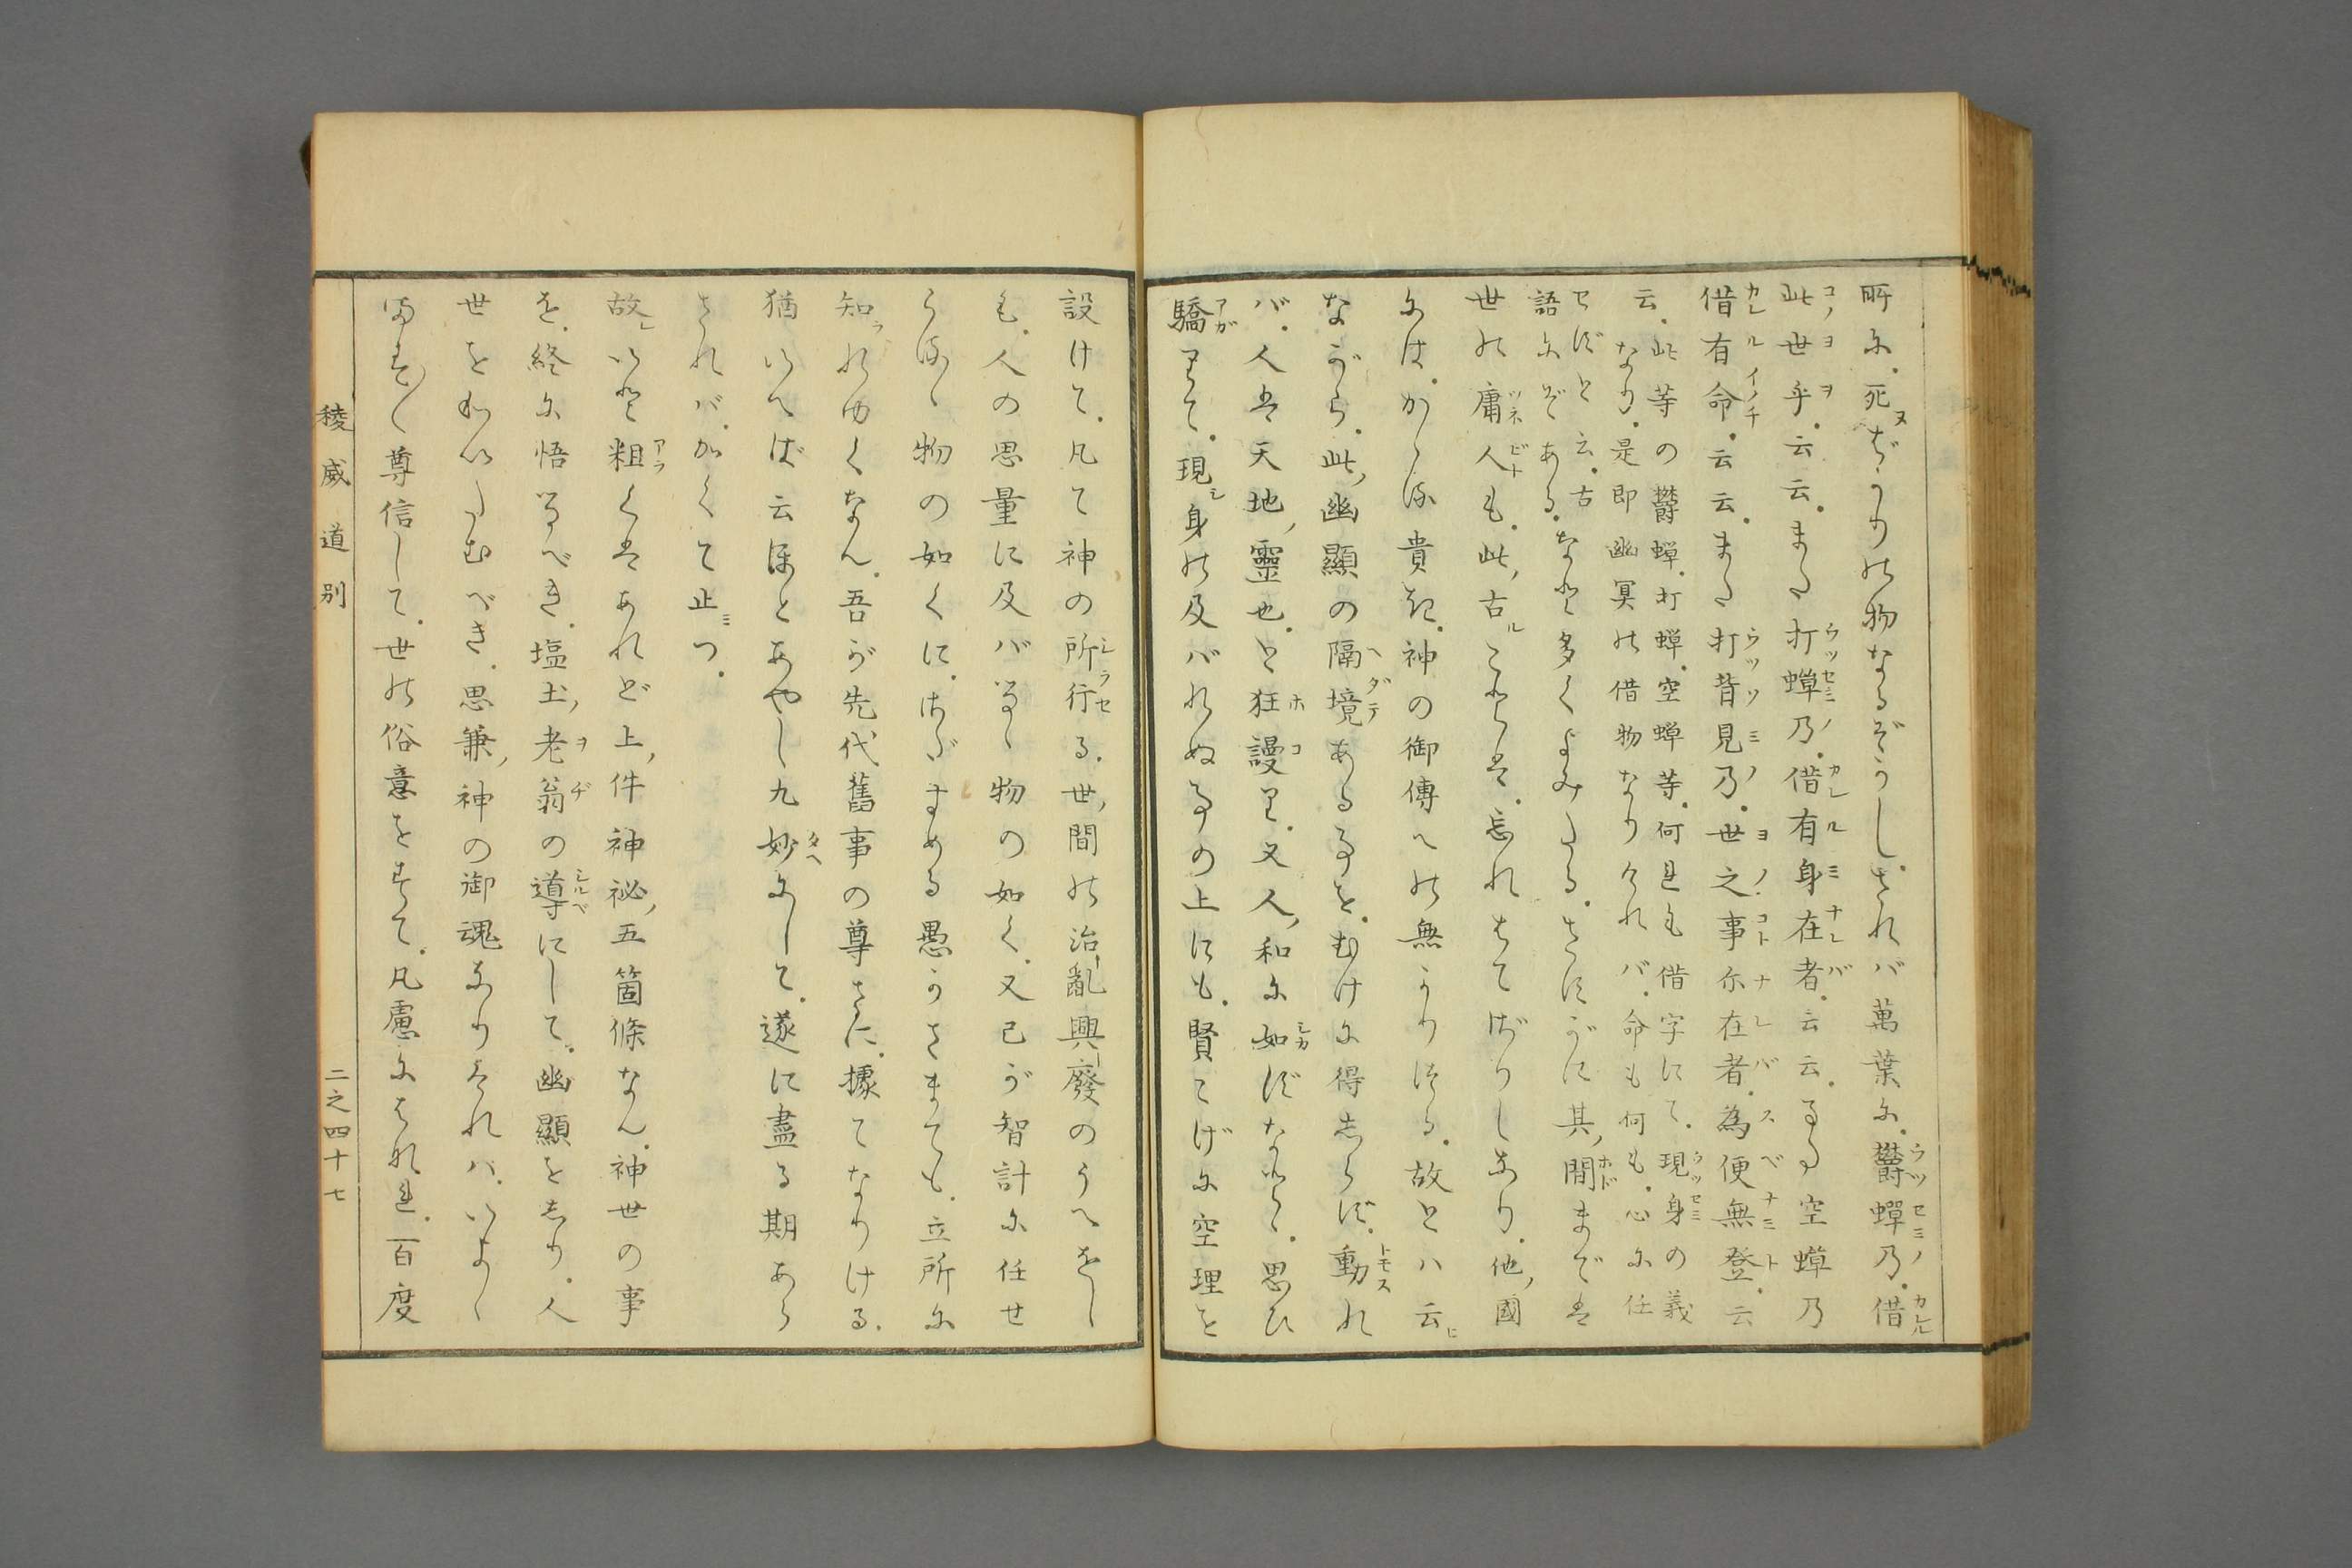 所に。死ぬばかりの物なるぞかし。されバ萬葉に。欝蟬乃。借
此世乎。云云。また打蟬乃。借有身在者。云云。また空蟬乃
借有命。云云。また打背見乃。世之事尓在者。為便無登。云
云。此等の欝蟬。打蟬。空蟬等。何れも借字にて。現身の義
なり。是即幽冥の借物なりければ。命も何も。心に任
せずと云。古
語にぞある。など多くよみたる。さすがに其間までは
世の庸人も。此古こゝろは。忘れはてざりしなり。他國
には。かゝる貴き。神の御傳への無かりける。故とハ云ヒ
ながら。此幽顯の隔境ある事を。むけに得しらず。動れ
バ。人は天地靈也。と狂謾り。又人和に如ずなど。思ひ
驕りて。現身の及バれぬ事の上にも。賢こげに空理を
設けて。凡て神の所行る。世間の治亂興廢のうへをし
も。人の思量に及バるゝ物の如く。又己が智計に任せ
らるゝ物の如くに。おぢまめる愚かさまても。立所に
知られゆくなん。吾が先代舊事の尊さに。據てなりける。
猶いへば云ほとあやしく妙にして。遂に盡る期あら
されバ。かくて止つ。
故いと粗くはあれど上件神祕五箇條なん。神世の事
を。終に悟るべき。塩土老翁の導にして。幽顯をしり。人
世をわいたむべき。思兼神の御魂なりければ。いよゝ
ます〳〵尊信して。世の俗意をすて。凡慮にはなれ。百度
稜威道別
二之四十七